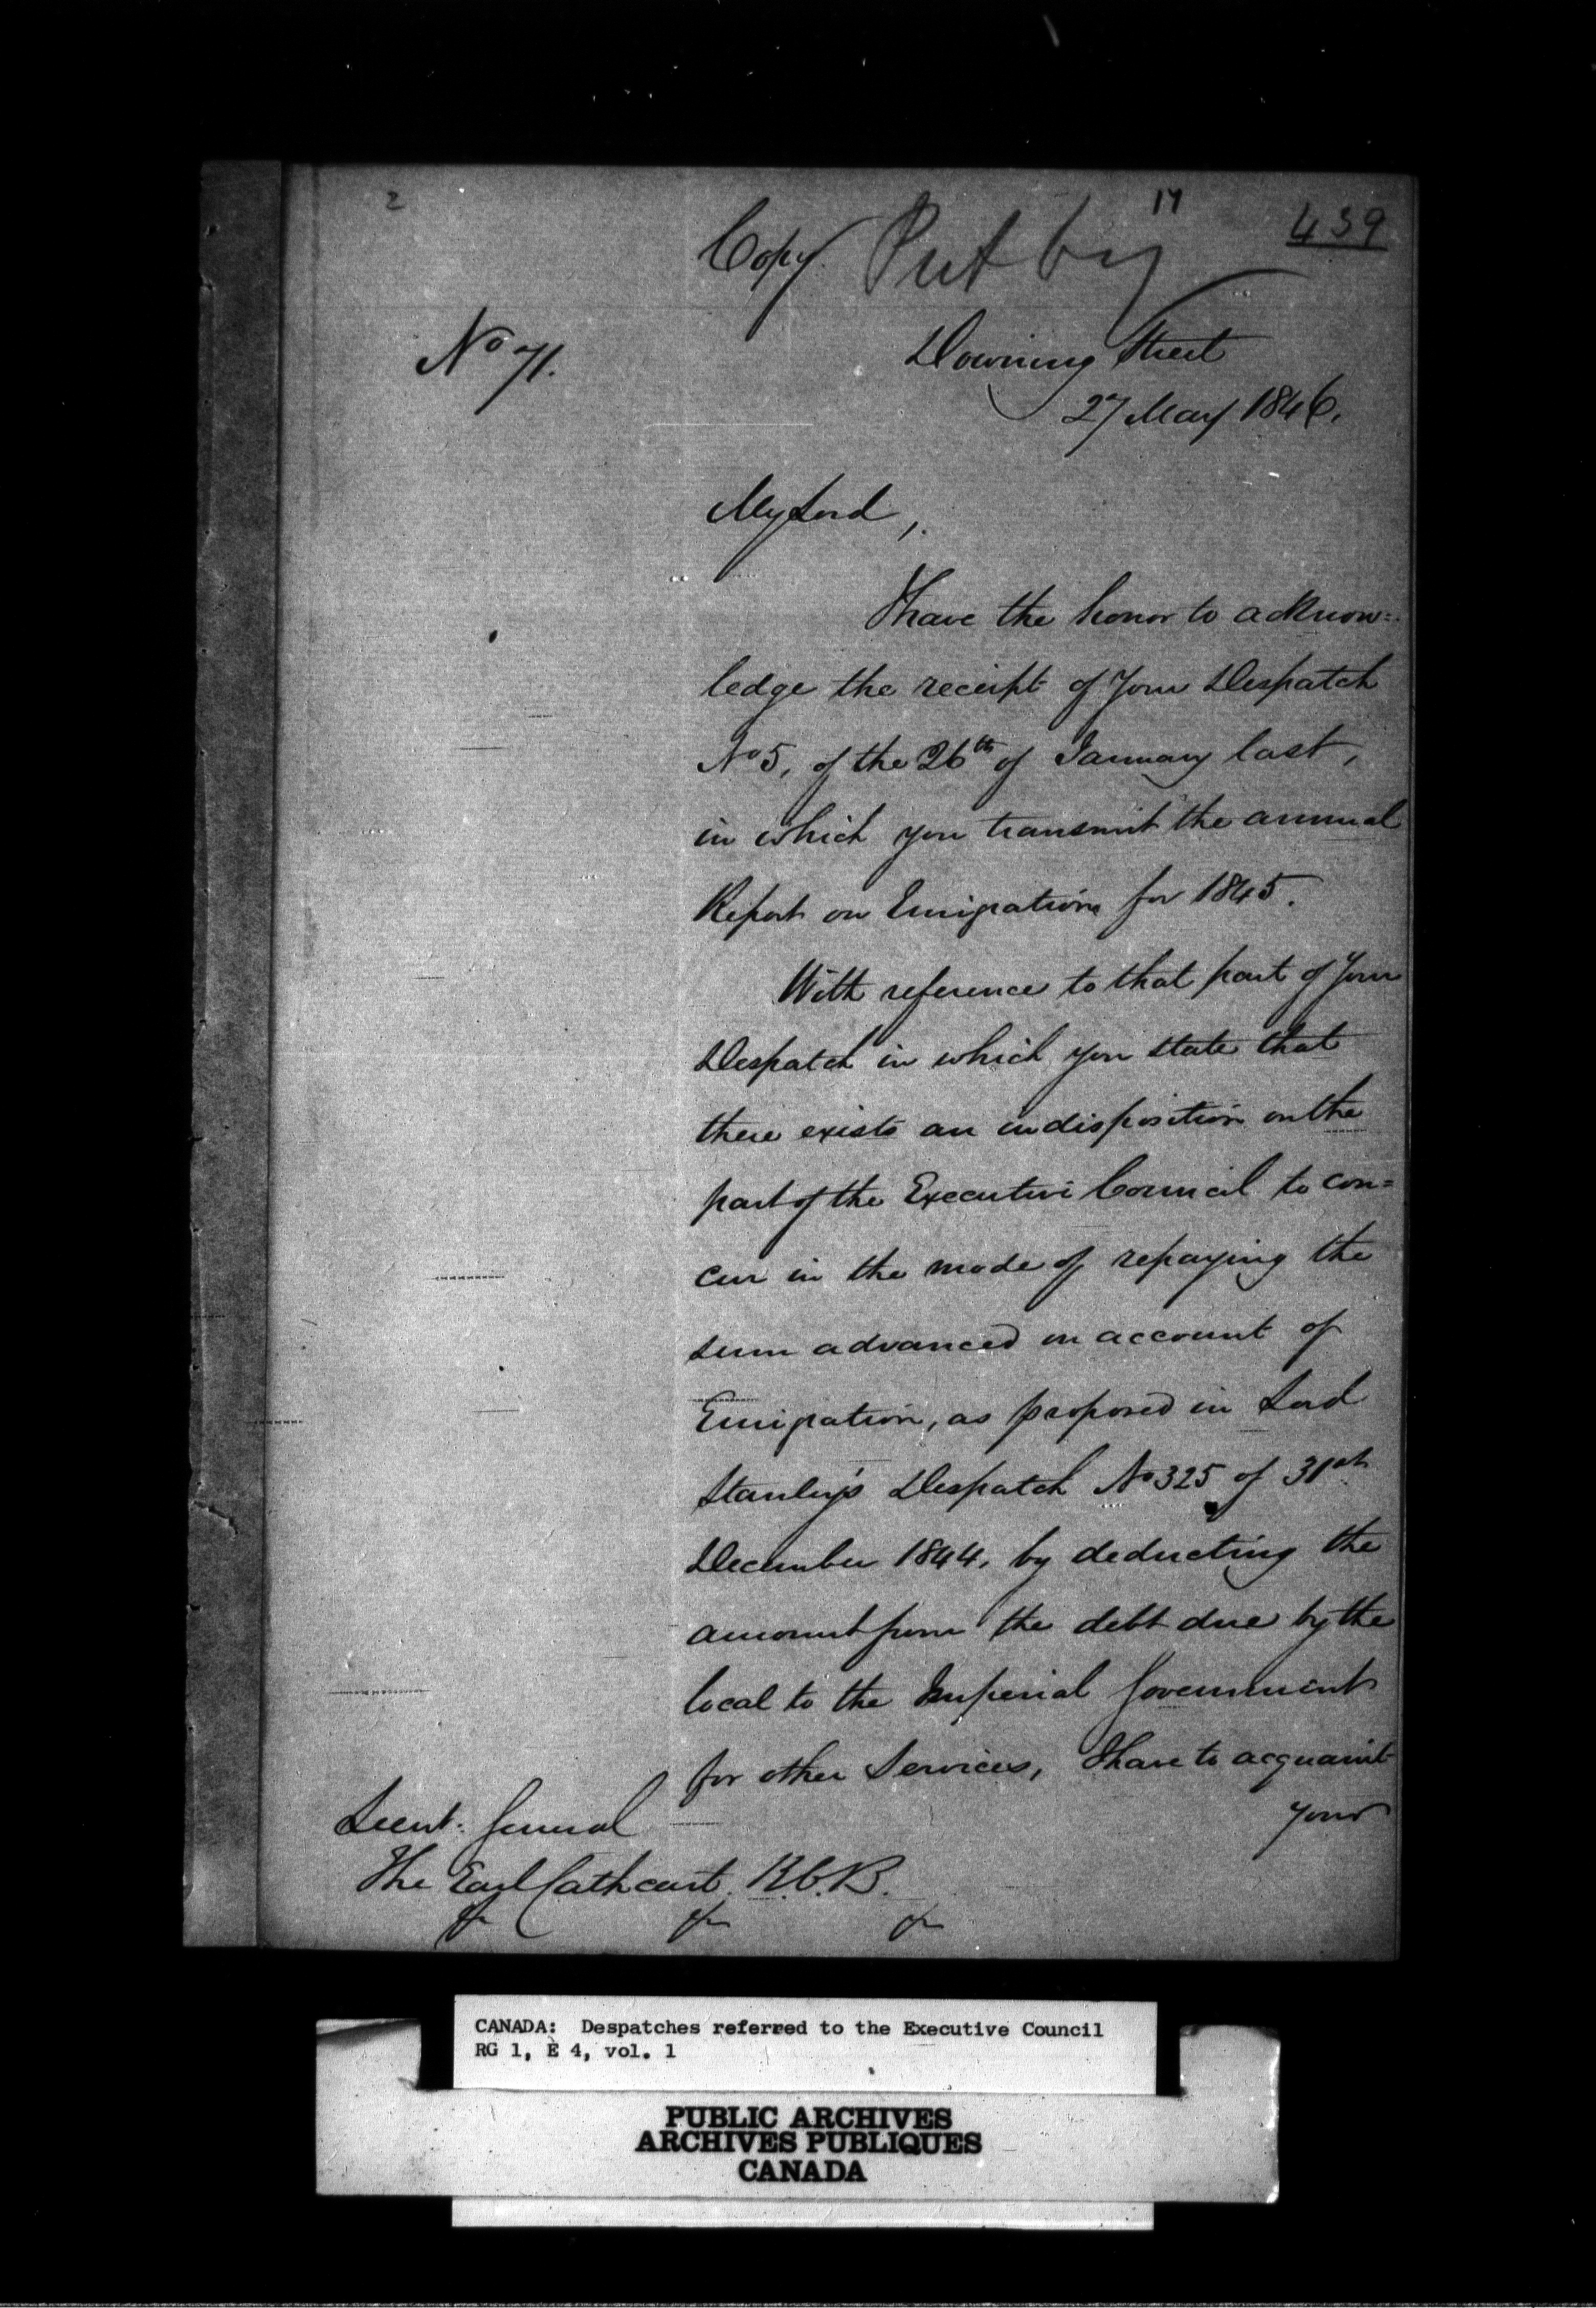 2
17
439
Copy
Put by
No 71.
Downing Street
27 May 1846.
My Lord,
I have the honor to acknow=
ledge the receipt of Your Despatch
No 5, of the 26th of January last,
in which you transmit the annual
Report on Emigration for 1845.
With reference to that part of Your
Despatch in which you state that
there exists an indisposition on the
part of the Executive Council to con=
cur in the mode of repaying the
sum advanced on account of
Emigration, as proposed in Lord
Stanley's Despatch No 325 of 31st
December 1844, by deducting the
amount from the debt due by the
local to the Imperial Government
for other Services, I have to acquaint
Your
Lieut. General
The Earl Cathcart K.C.B.
&c &c &c
CANADA: Despatches referred to the Executive Council
RG 1, E 4, vol. 1
PUBLIC ARCHIVES
ARCHIVES PUBLIQUES
CANADA